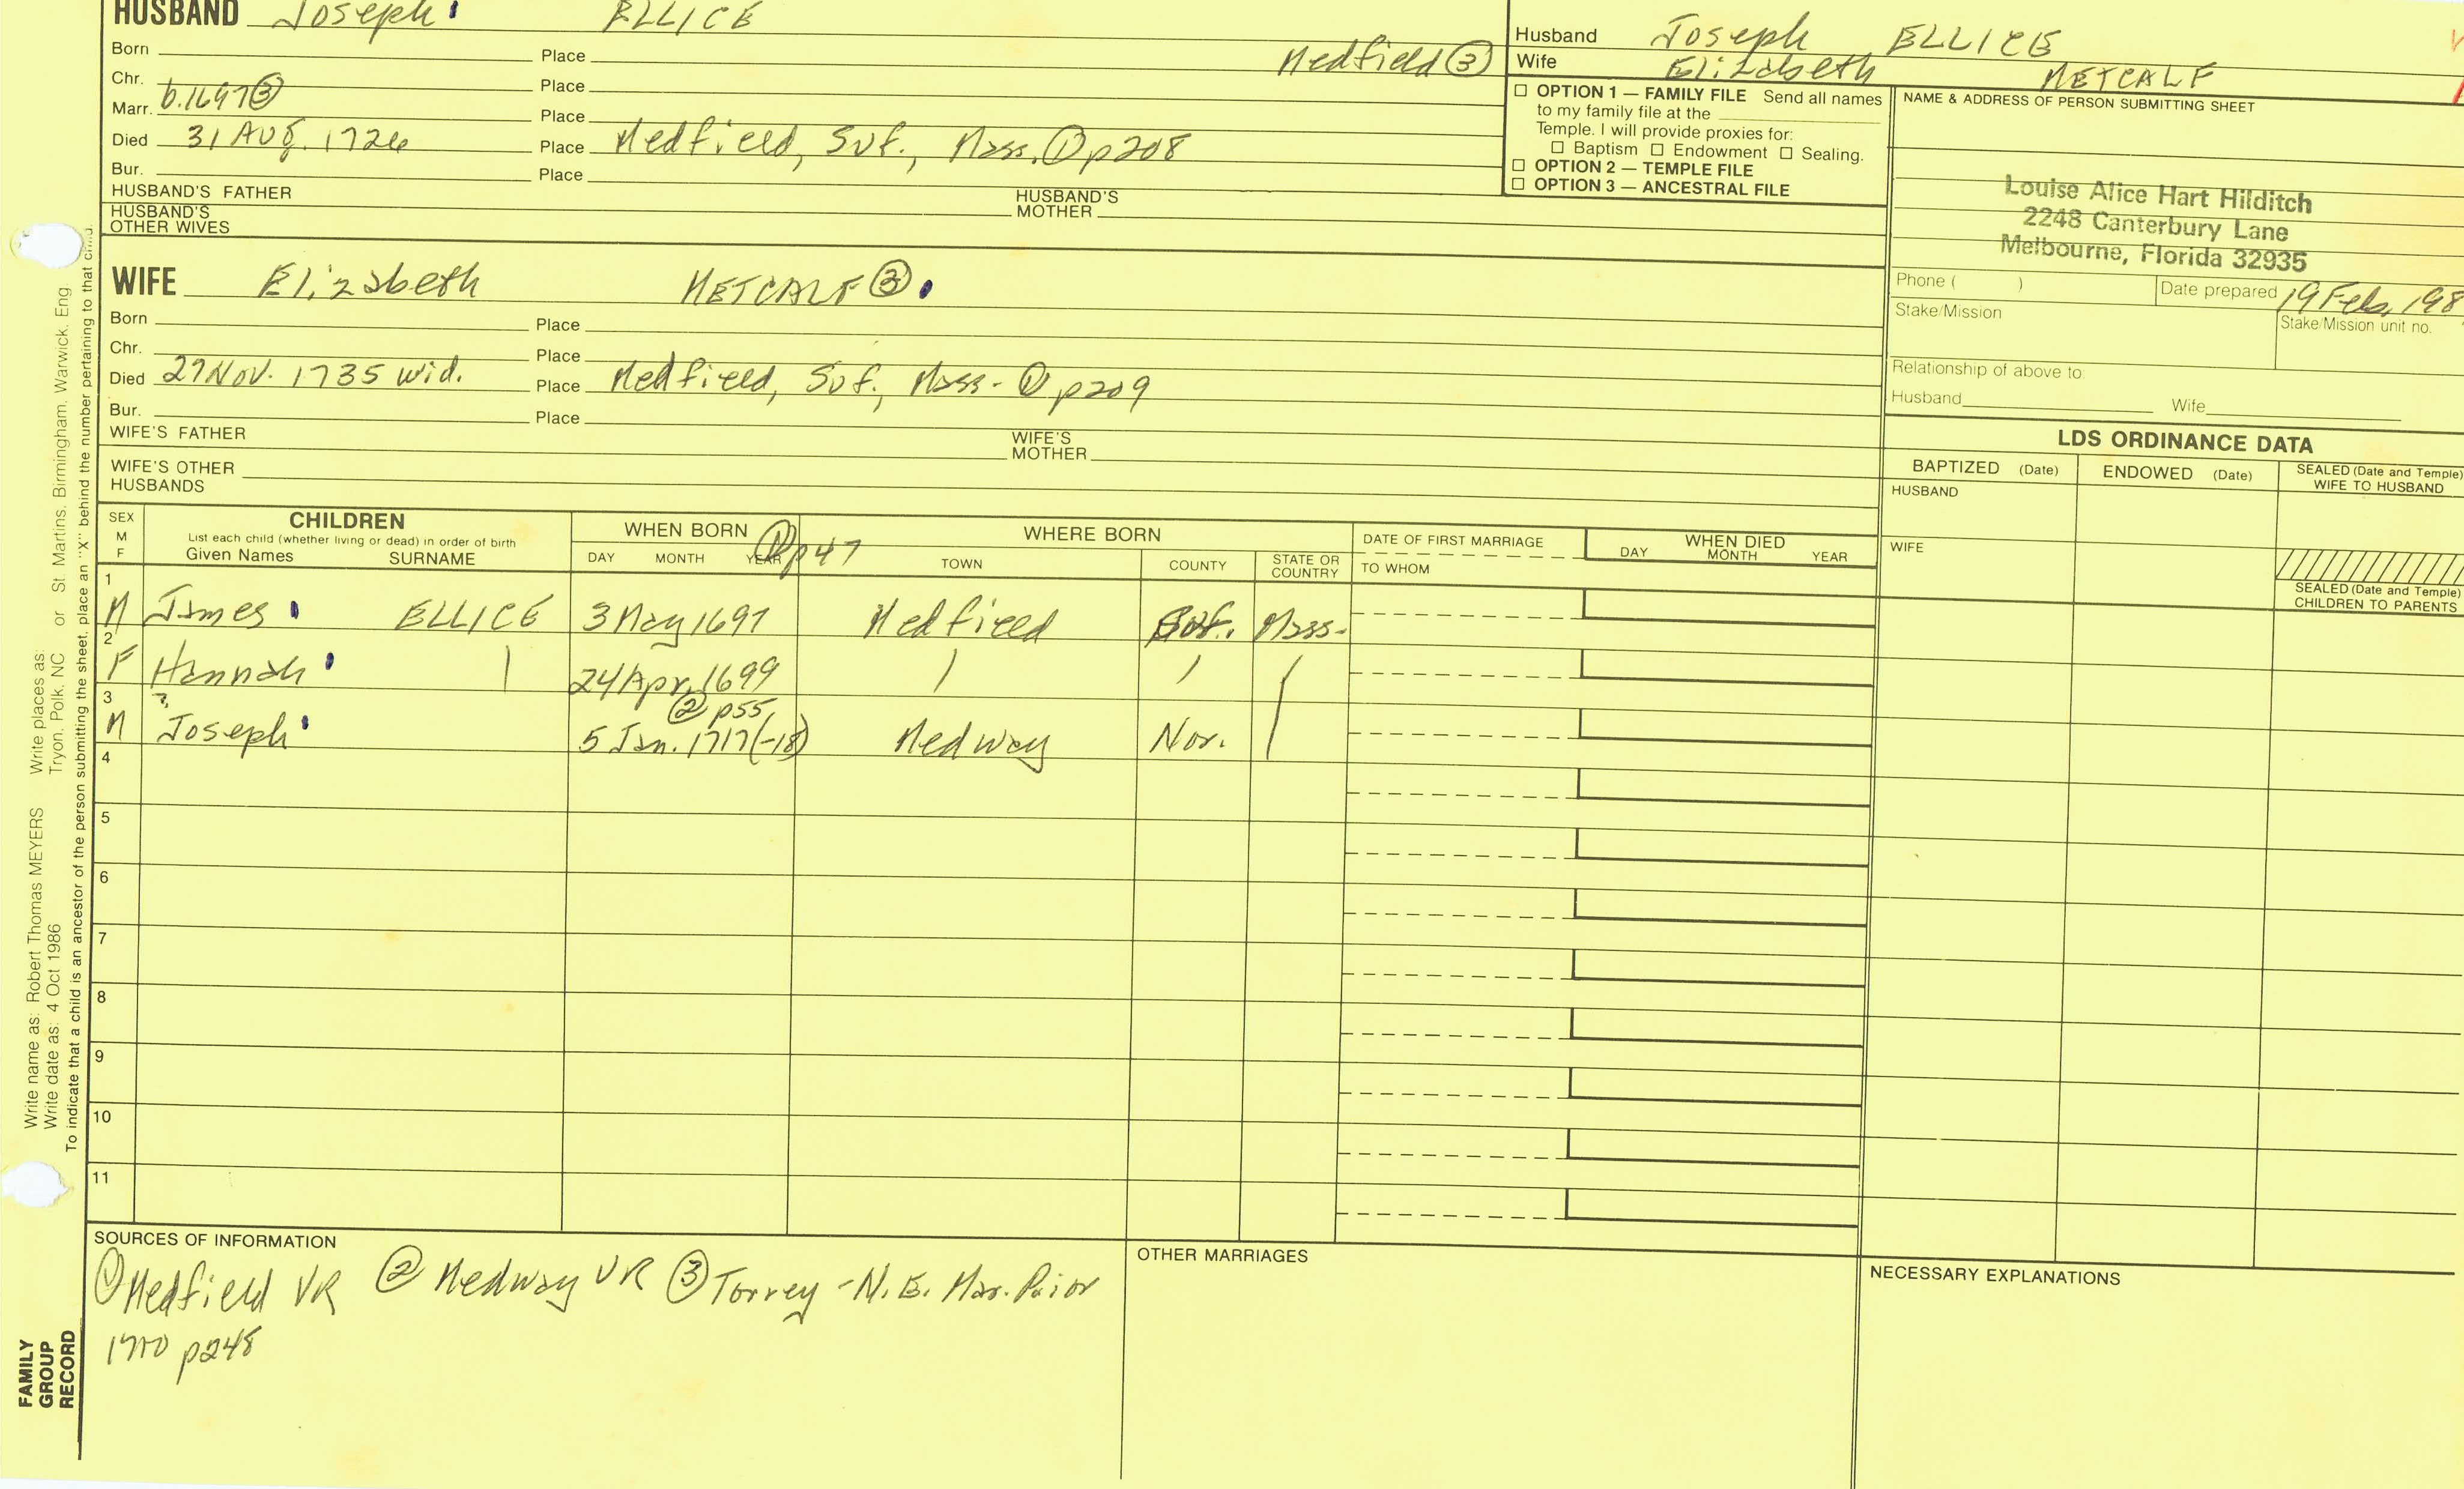 HUSBAND Joseph ELLICE
Born Place Medfield ③
Chr. Place
Marr. b.1697③ Place
Died 31 Aug. 1726 Place Medfield, Suf., Mass. ① p208
Bur. Place
HUSBAND'S FATHER HUSBAND'S MOTHER
HUSBAND'S OTHER WIVES
WIFE Elizabeth METCALF ③
Born Place
Chr. Place
Died 27 Nov. 1735 wid. Place Medfield, Suf., Mass- ① p209
Bur. Place
WIFE'S FATHER WIFE'S MOTHER
WIFE'S OTHER HUSBANDS
Husband Joseph ELLICE
Wife Elizabeth METCALF
☐ OPTION 1 — FAMILY FILE Send all names
to my family file at the
Temple. I will provide proxies for:
☐ Baptism ☐ Endowment ☐ Sealing.
☐ OPTION 2 — TEMPLE FILE
☐ OPTION 3 — ANCESTRAL FILE
NAME & ADDRESS OF PERSON SUBMITTING SHEET
Louise Alice Hart Hilditch
2248 Canterbury Lane
Melbourne, Florida 32935
Phone ( ) Date prepared 19 Feb. 198
Stake/Mission Stake/Mission unit no.
Relationship of above to:
Husband Wife
LDS ORDINANCE DATA
BAPTIZED (Date) ENDOWED (Date) SEALED (Date and Temple) WIFE TO HUSBAND
HUSBAND
WIFE
SEALED (Date and Temple)
CHILDREN TO PARENTS
SEX M F CHILDREN WHEN BORN ① p47 WHERE BORN DATE OF FIRST MARRIAGE WHEN DIED
List each child (whether living or dead) in order of birth
Given Names SURNAME DAY MONTH YEAR TOWN COUNTY STATE OR COUNTRY TO WHOM DAY MONTH YEAR
1 M James ELLICE 3 May 1697 Medfield Suf. Mass-
2 F Hannah 24 Apr. 1699
3 M ? Joseph ② p55 5 Jan. 1717(-18) Medway Nor.
4
5
6
7
8
9
10
11
SOURCES OF INFORMATION
① Medfield VR ② Medway VR ③ Torrey - N.E. Mar. Prior
1700 p248
OTHER MARRIAGES
NECESSARY EXPLANATIONS
Write name as: Robert Thomas MEYERS Write places as: Tryon, Polk, NC or St. Martins, Birmingham, Warwick, Eng
Write date as: 4 Oct 1986
To indicate that a child is an ancestor of the person submitting the sheet, place an "X" behind the number pertaining to that child.
FAMILY
GROUP
RECORD